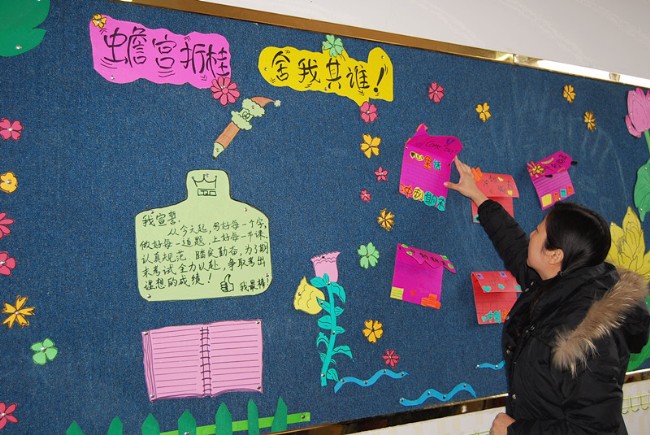 蟾宫折桂
舍我其谁!
我宣誓:
从今天起,写好每一个字,
做好每一道题,上好每一节课,
认真规范,踏实勤奋,期
末考试全力以赴,争取考出
理想的成绩! 我最棒